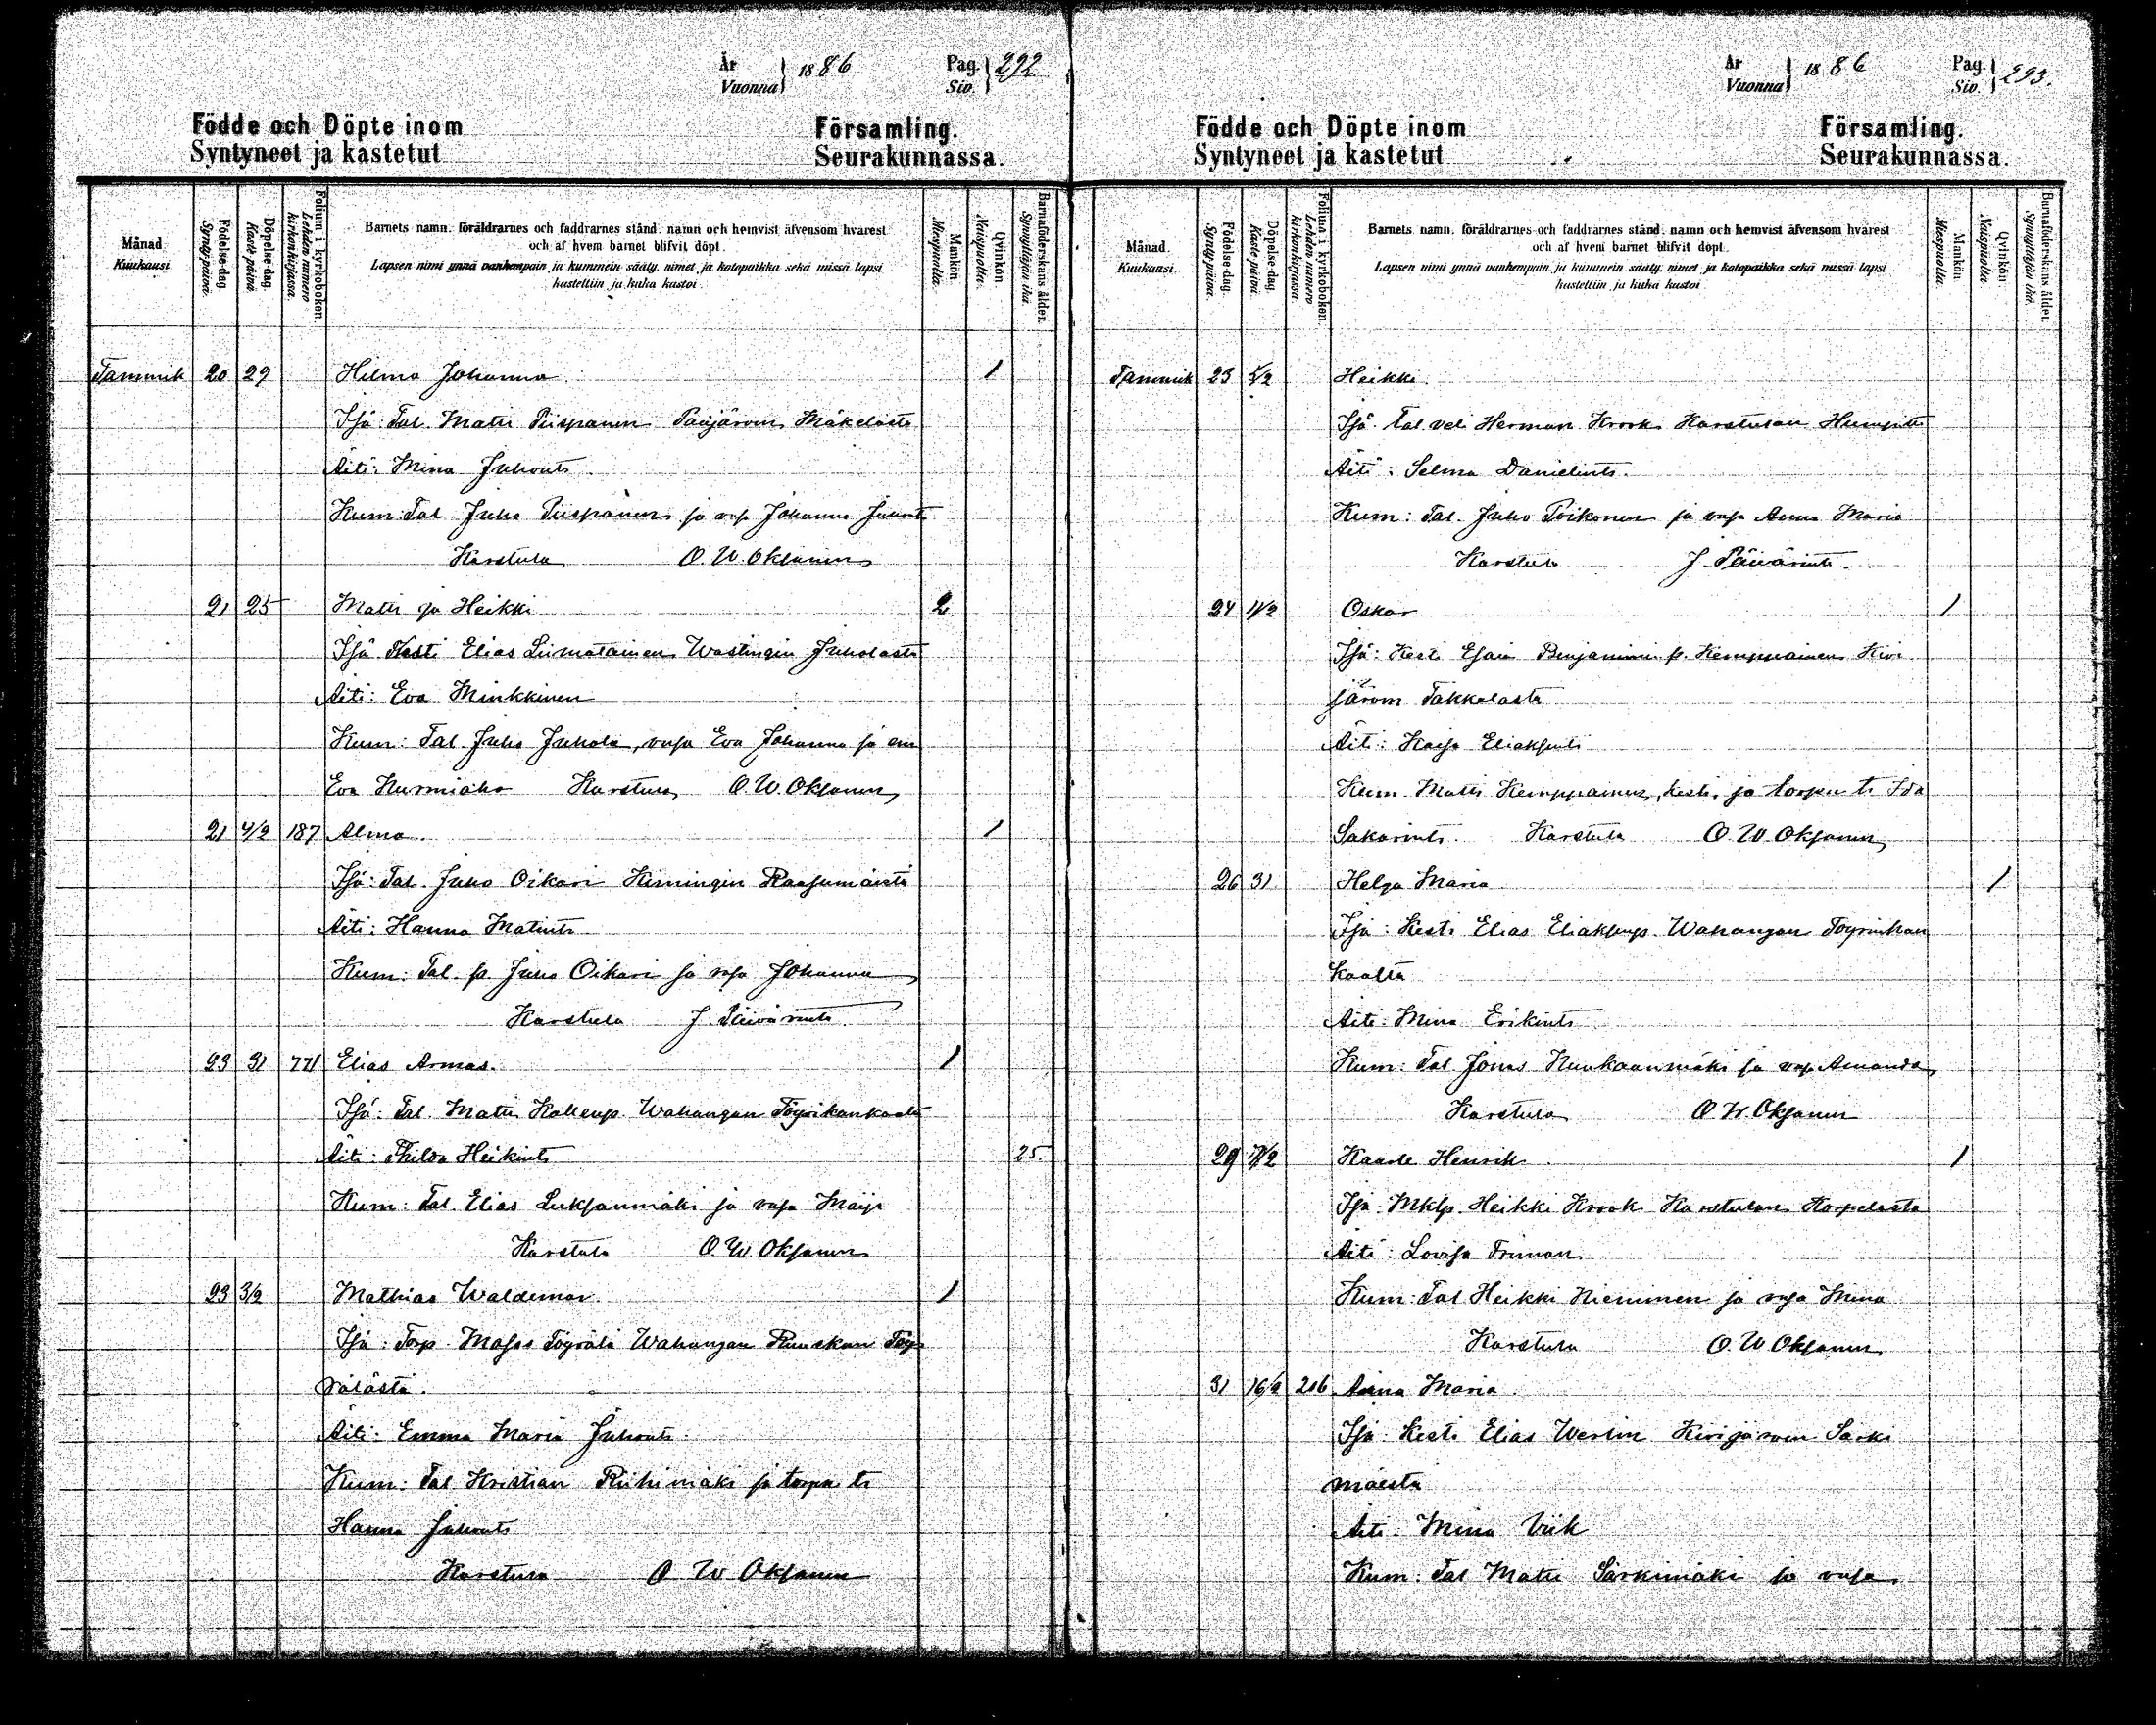 År Vuonna 1886 Pag. Siv. 292
Födde och Döpte inom Församling.
Syntyneet ja kastetut Seurakunnassa.
Månad Kuukausi.
Födelse-dag. Synty-päivä.
Döpelse-dag. Kaste-päivä.
Folium i kyrkoboken. Lehden numero kirkonkirjassa.
Barnets namn, föräldrarnes och faddrarnes stånd, namn och hemvist äfvensom hvarest
och af hvem barnet blifvit döpt.
Lapsen nimi ynnä vanhempain ja kummein sääty, nimet ja kotopaikka sekä missä lapsi
kastettiin ja kuka kastoi.
Mankön Miespuolta.
Qvinkön Naispuolta.
Barnaföderskans ålder. Synnyttäjän ikä.
Tammik 20 29 Hilma Johanna 1
Isä: Tal. Matti Piispanen Pääjärven Mäkelästä
Äiti: Mina Juhont.
Kum: Tal. Juho Piispanen ja vaja Johanna Juhont
Karstula O. W. Oksanen
21 25 Matti ja Heikki 2
Isä Kesti Elias Liimatainen Wastingin Juholasta
Äiti: Eva Minkkinen
Kum: Tal. Juho Juhola, vaja Eva Johanna ja em
Eva Nurmiaho Karstula O. W. Oksanen
21 4/2 187 Alma. 1
Isä: Tal. Juho Oikari Kimingin Raajumäistä
Äiti: Hanna Matintr
Kum: Tal. p. Juho Oikari ja vaja Johanna
Karstula J. Päivärinta
23 31 771 Elias Armas. 1
Isä: Tal. Matti Kallenp. Wahangan Töyrikankaalta
Äiti: Thilda Heikint 25.
Kum: Tal. Elias Luksanmäki ja vaja Maija
Karstula O. W. Oksanen
23 3/2 Mathias Waldemar. 1
Isä: Torp. Moses Töyrälä Wahangan Ruuskan Töy-
rälästä.
Äiti: Emma Maria Juhont
Kum: Tal. Kristian Riihimäki ja torpa tr
Hanna Juhont
Karstula O W Oksanen
År Vuonna 1886 Pag. Siv. 293.
Födde och Döpte inom Församling.
Syntyneet ja kastetut Seurakunnassa.
Månad. Kuukausi.
Födelse-dag. Synty-päivä.
Döpelse-dag. Kaste-päivä.
Folium i kyrkoboken. Lehden numero kirkonkirjassa.
Barnets namn, föräldrarnes och faddrarnes stånd, namn och hemvist äfvensom hvarest
och af hvem barnet blifvit döpt.
Lapsen nimi ynnä vanhempain ja kummein sääty, nimet ja kotopaikka sekä missä lapsi
kastettiin ja kuka kastoi.
Mankön Miespuolta.
Qvinkön Naispuolta.
Barnaföderskans ålder. Synnyttäjän ikä.
Tammik 23 5/2 Heikki
Isä: Tal. veli Herman Krook Karstulan Humpilta
Äiti: Selma Danielint.
Kum: Tal. Juho Poikonen ja vaja Anna Maria
Karstula J. Päivärinta.
24 11/2 Oskar 1
Isä: Kesti Esais Benjamini p. Kemppainen Kivi
järven Takkalasta
Äiti: Kaisa Eliaksent
Kum Matti Kemppainen, kesti, ja torpan tr Ida
Sakarint. Karstula O W Oksanen
26 31 Helga Maria 1
Isä: Kesti Elias Eliaksenp. Wahangan Töyrinkan
kaalta
Äiti: Mina Erikint
Kum: Tal Jonas Kunkaanmäki ja vaja Amanda
Karstula O. W. Oksanen
29 17/2 Kaarle Henrik 1
Isä: Mklp. Heikki Krook Karstulan Korpelasta
Äiti: Lovisa Friman.
Kum: Tal Heikki Nieminen ja vaja Mina
Karstula O. W Oksanen
31 16/2 216 Anna Maria
Isä: Kesti Elias Werlin Kivijärven Särki
mäestä
Äiti. Mina Vik
Kum: Tal Matti Särkimäki ja vaja